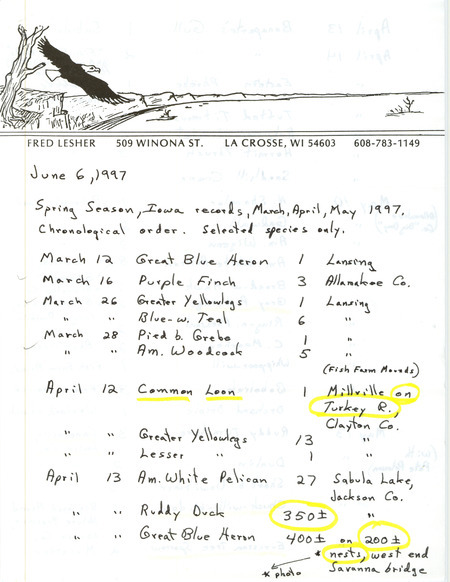 FRED LESHER 509 WINONA ST. LA CROSSE, WI 54603 608-783-1149
June 6, 1997
Spring Season, Iowa records, March, April, May 1997.
Chronological order. Selected species only.
March 12 Great Blue Heron 1 Lansing
March 16 Purple Finch 3 Allamakee Co.
March 26 Greater Yellowlegs 1 Lansing
" " Blue-w. Teal 6 "
March 28 Pied b. Grebe 1 "
" " Am. Woodcock 5 "
(Fish Farm Mounds)
April 12 Common Loon 1 Millville on
Turkey R.,
Clayton Co.
" " Greater Yellowlegs 13 "
" " Lesser " 1 "
April 13 Am. White Pelican 27 Sabula Lake,
Jackson Co.
" " Ruddy Duck 350± "
" " Great Blue Heron 400± on 200±
* nests, west end
* photo Savanna bridge